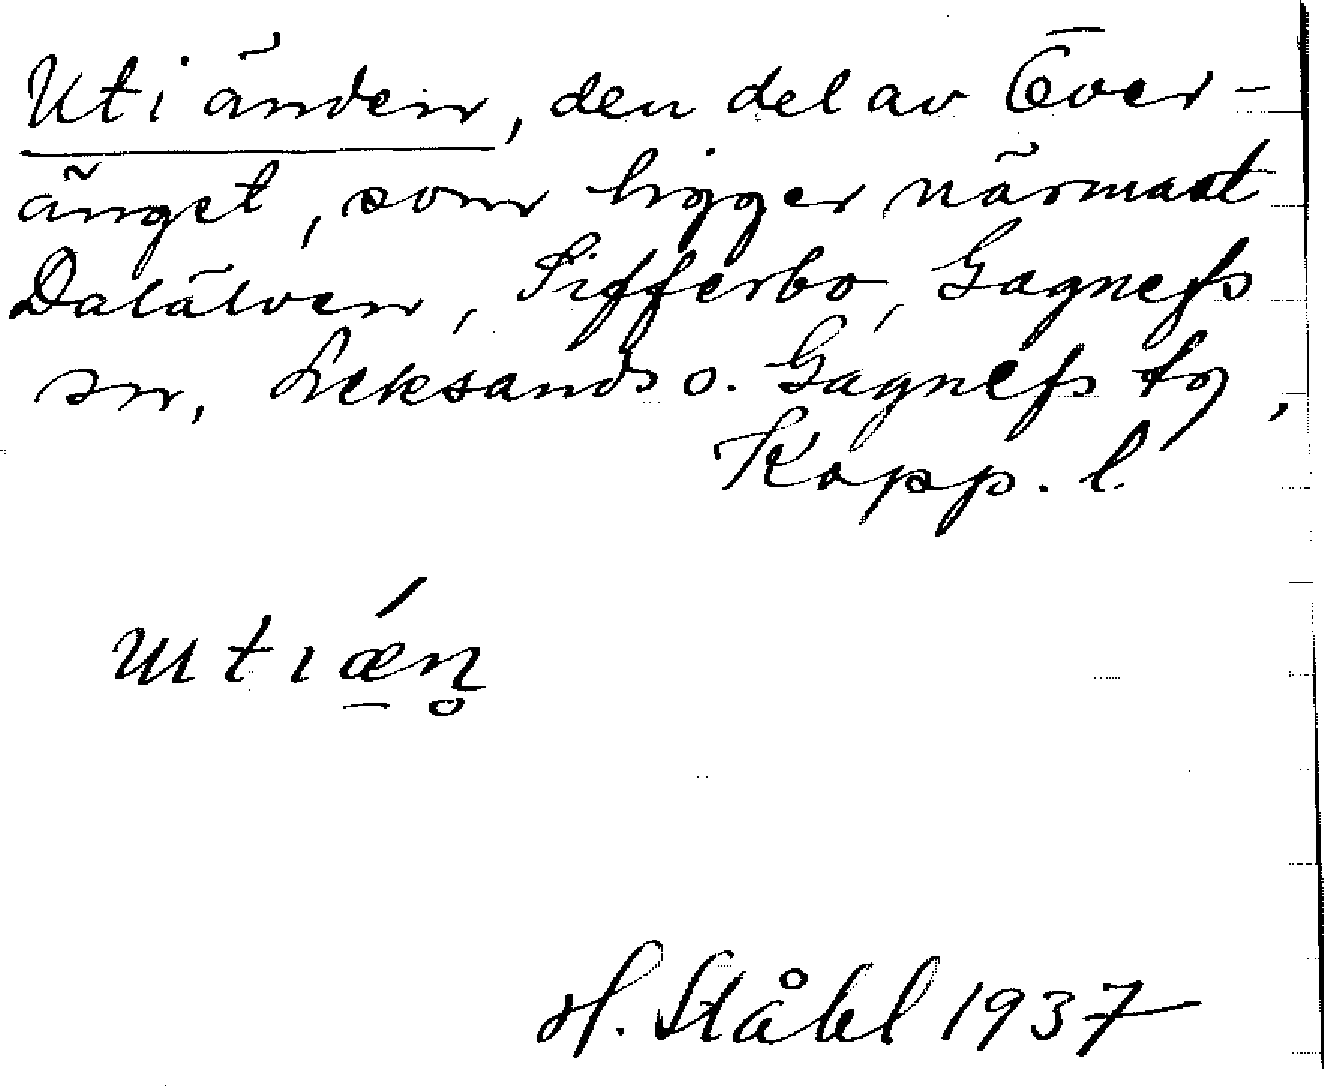 Uti änden, den del av Över-
änget, som ligger närmast
Dalälven, Sifferbo, Gagnefs
sn, Leksands o. Gagnefs tg,
Kopp. l.
utıǽn̥
H. Ståhl 1937